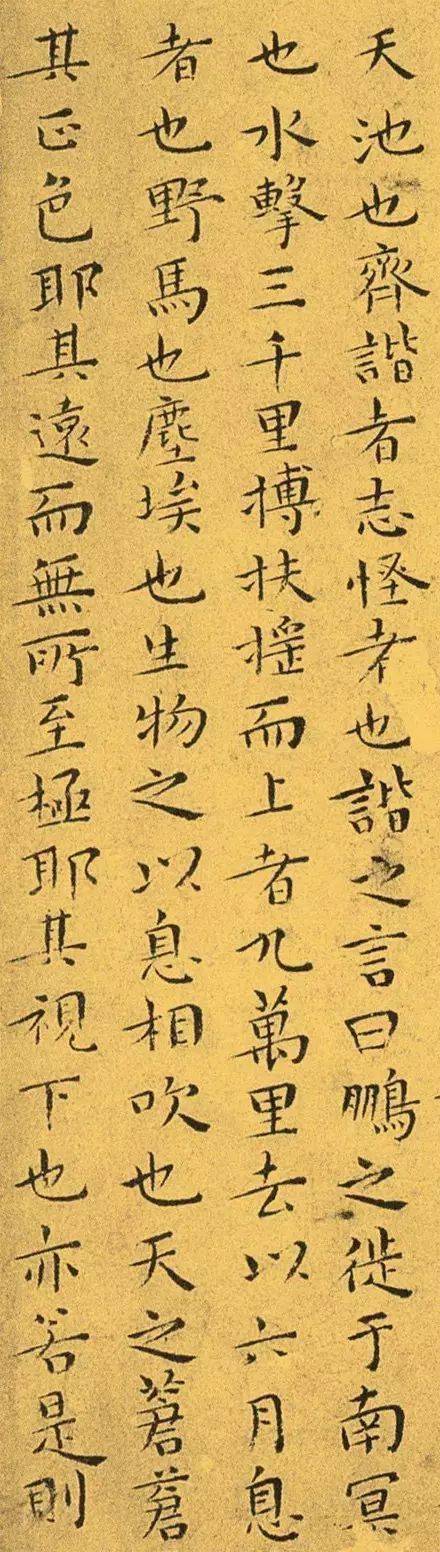 天池也齊諧者志怪者也諧之言曰鵬之徙于南冥
也水擊三千里搏扶搖而上者九萬里去以六月息
者也野馬也塵埃也生物之以息相吹也天之蒼蒼
其正色耶其遠而無所至極耶其視下也亦若是則